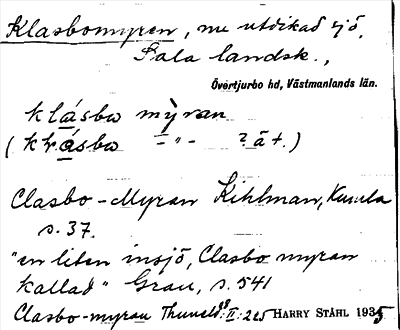 Klasbomyren, nu utdikad sjö,
Sala landsk.,
Övertjurbo hd, Västmanlands län.
klásbo mỳran
(krásbo –"– ? ät.)
Clasbo-Myran Kihlman, Kumla
s. 37.
"en liten insjö, Clasbo myran
kallad" Grau, s. 541
Clasbo-myran Thuneld: II: 265 HARRY STÅHL 1935